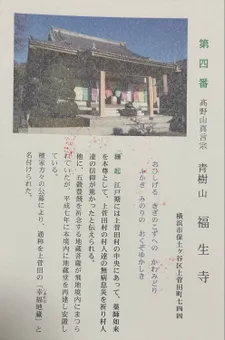 第四番 高野山真言宗 青樹山 福生寺
横浜市保土ヶ谷区上菅田町七四四
おひしげる きぎのこずへの かわみどり
ふかき みのりの おくぞゆかしき
縁起 江戸期には上菅田村の中央にあって、薬師如来
を本尊として、上菅田村の村人達の無病息災を祈り村人
達の信仰が篤かったと伝えられる。
他に、五穀豊穣を祈念する地蔵菩薩が飛地境内にまつら
れていたが、平成七年に本境内に地蔵堂を再建し安置し
ている。
檀家方々の公募により、通称を上菅田の「幸福地蔵」と
名付けられた。